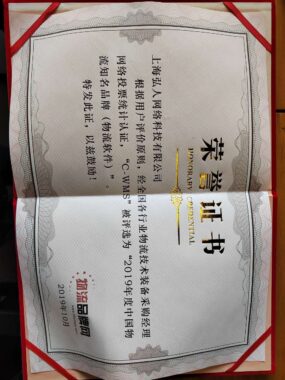 荣誉证书
HONORARY CREDENTIAL
上海弘人网络科技有限公司
根据用户评价原则，经全国各行业物流技术装备采购经理
网络投票统计认证，“C-WMS”被评选为“2019年度中国物
流知名品牌（物流软件）”。
特发此证，以兹鼓励！
物流品牌网
2019年10月